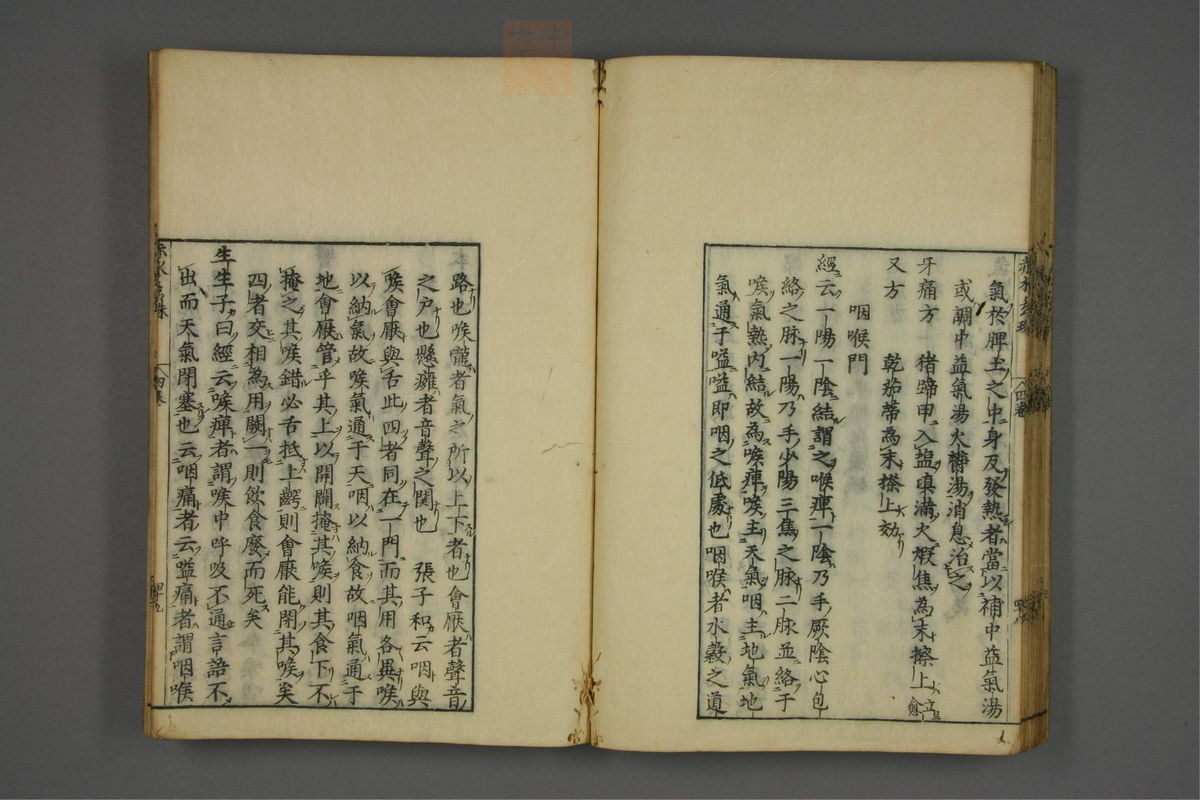 氣於脾土之中身及發熱者當以補中益氣湯
或調中益氣湯火鬱湯消息治之
牙痛方 猪蹄甲入塩填滿火煆焦為末擦上立愈
又方 乾茄蒂為末搽上効
咽喉門
經云一陽一陰結謂之喉痺一陰乃手厥陰心包
絡之脉一陽乃手少陽三焦之脉二脉並絡于
喉氣熱內結故為喉痺喉主天氣咽主地氣地
氣通于嗌嗌即咽之低處也咽喉者水穀之道
路也喉嚨者氣之所以上下者也會厭者聲音
之户也懸癰者音聲之関也 張子和云咽與
喉會厭與舌此四者同在一門而其用各異喉
以納氣故喉氣通于天咽以納食故咽氣通于
地會厭管乎其上以開闔掩其喉則其食下不
掩之其喉錯必舌抵上齶則會厭能閉其喉矣
四者交相為用闕一則飲食廢而死矣
生生子曰經云喉痺者謂喉中呼吸不通言語不
出而天氣閉塞也云咽痛者云嗌痛者謂咽喉